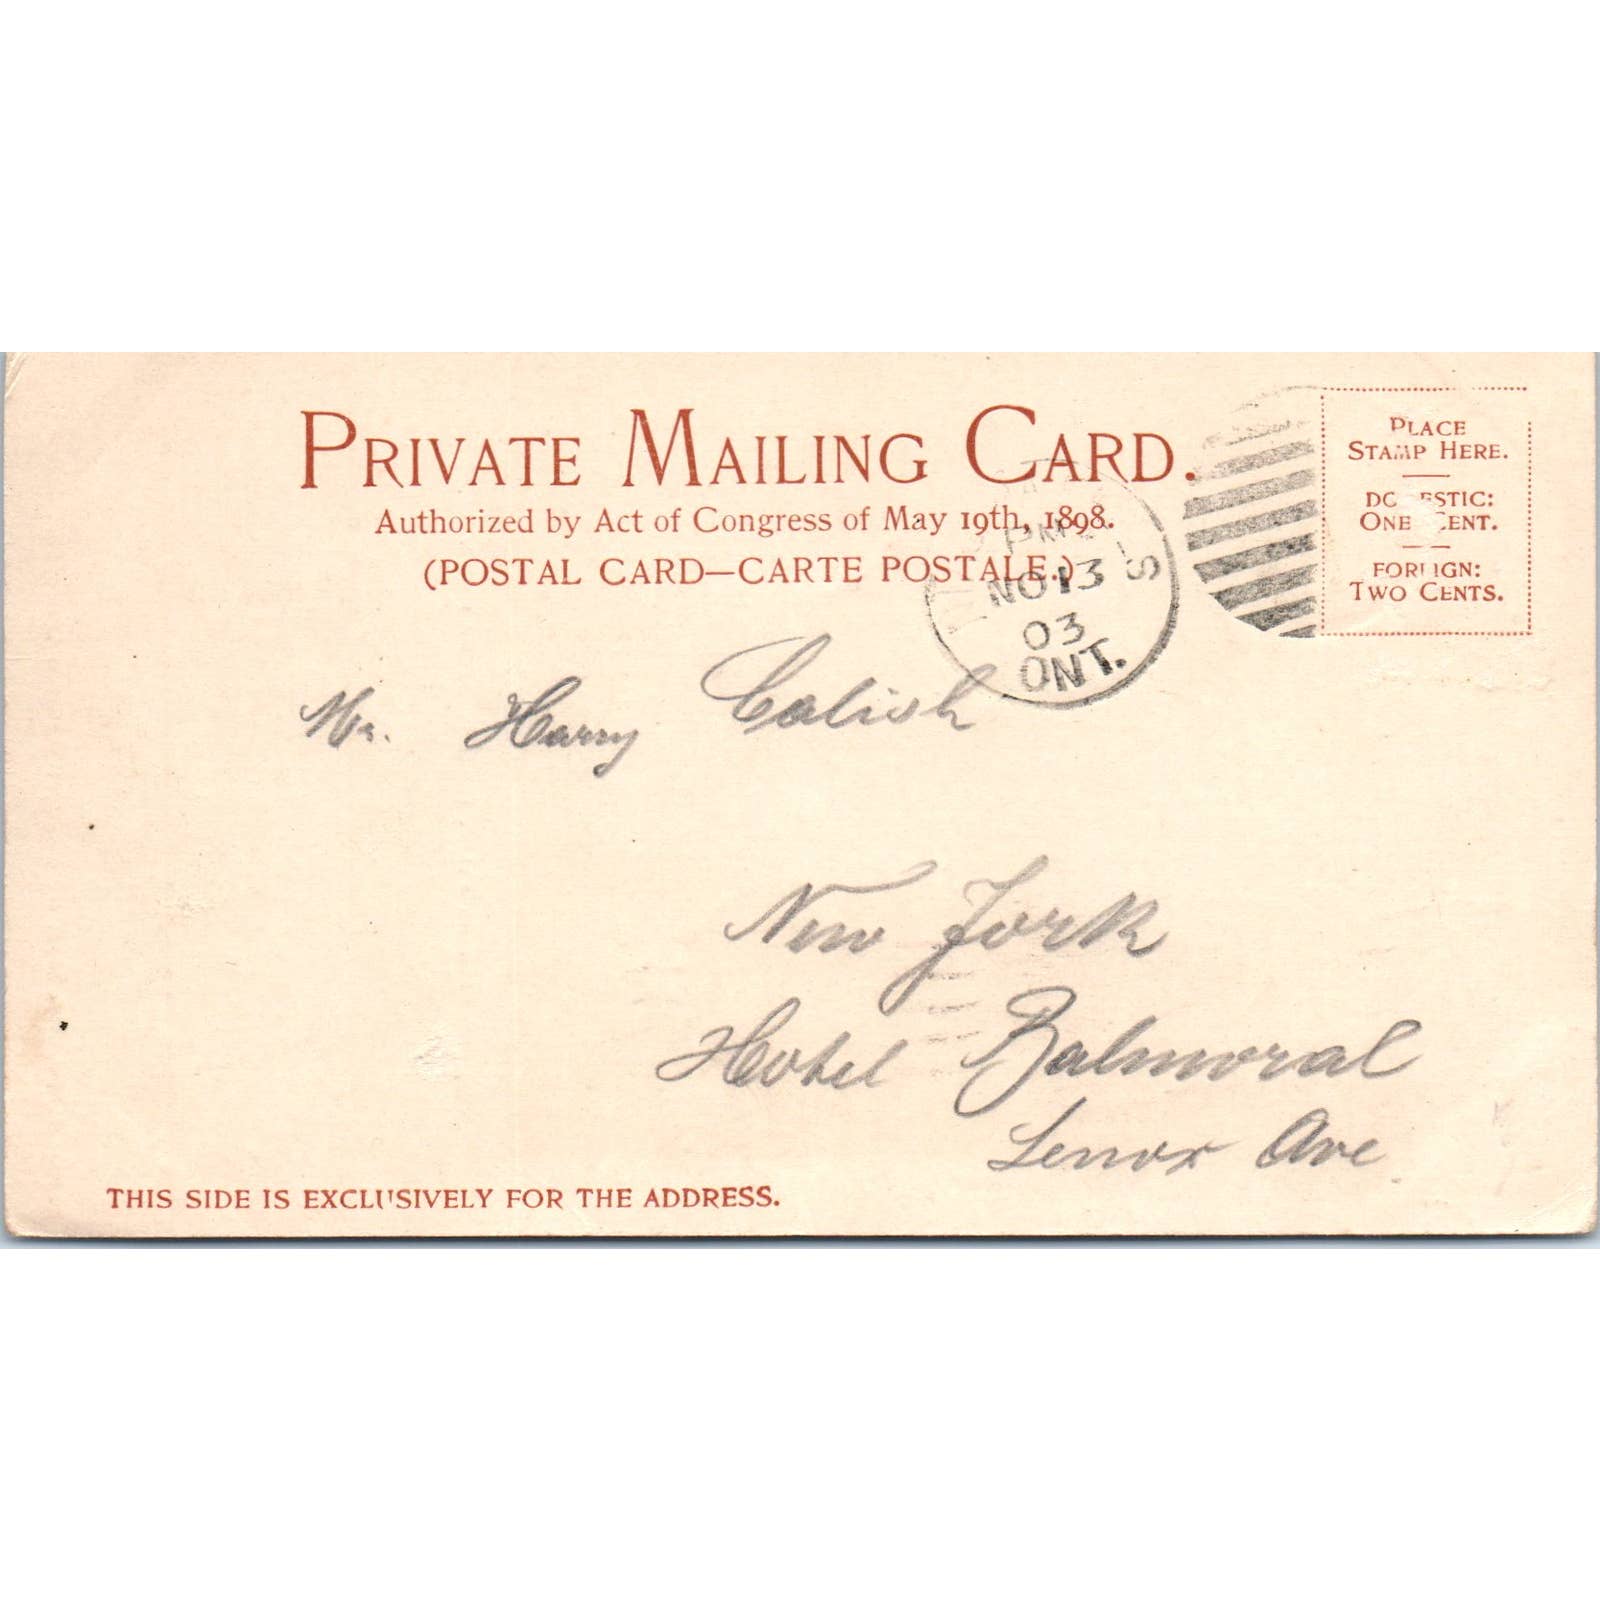 PRIVATE MAILING CARD.
Authorized by Act of Congress of May 19th, 1898.
(POSTAL CARD—CARTE POSTALE.)
PLACE
STAMP HERE.
DOMESTIC:
ONE CENT.
FOREIGN:
TWO CENTS.
PM
NO 13
03
ONT.
Mr. Harry Calish
New York
Hotel Balmoral
Lenox Ave
THIS SIDE IS EXCLUSIVELY FOR THE ADDRESS.